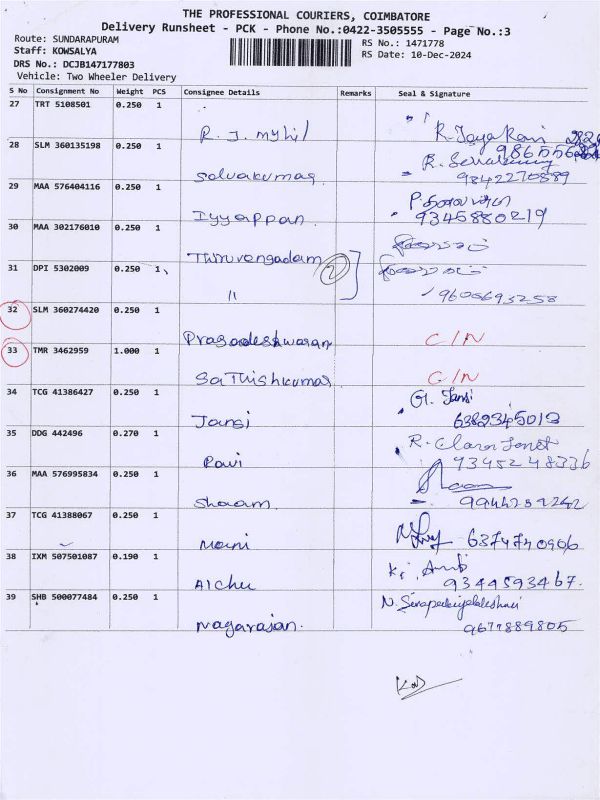 THE PROFESSIONAL COURIERS, COIMBATORE
Delivery Runsheet - PCK - Phone No.:0422-3505555 - Page No.:3
Route: SUNDARAPURAM RS No.: 1471778
Staff: KOWSALYA RS Date: 10-Dec-2024
DRS No.: DCJB147177803
Vehicle: Two Wheeler Delivery
S No Consignment No Weight PCS Consignee Details Remarks Seal & Signature
27 TRT 5108501 0.250 1
R. J. mythil R. Jayakavi
28 SLM 360135198 0.250 1
Selvakumar 9842270889
29 MAA 576404116 0.250 1
Iyyappan 9345880219
30 MAA 302176010 0.250 1
Thiruvengadam 2
31 DPI 5302009 0.250 1
11 9605693258
32 SLM 360274420 0.250 1
Pragadeshwaran C/N
33 TMR 3462959 1.000 1
Sathishkumar C/N
34 TCG 41386427 0.250 1 G. Jansi
Jansi 6382345013
35 DDG 442496 0.270 1 R. Clara Janet
Ravi 9345248336
36 MAA 576995834 0.250 1
Shaam 9944259242
37 TCG 41388067 0.250 1
Mani 6374740906
38 IXM 507501087 0.190 1
Alchu 9344593467.
39 SHB 500077484 0.250 1
Nagarajan. 9677889805